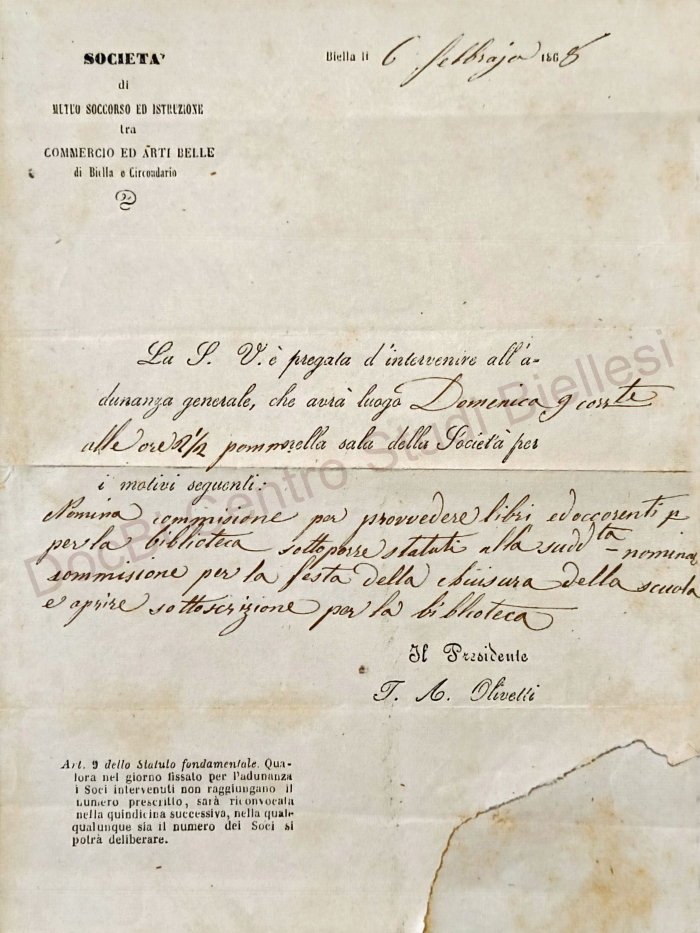 SOCIETA'
di
MUTUO SOCCORSO ED ISTRUZIONE
tra
COMMERCIO ED ARTI BELLE
di Biella e Circondario
Biella li 6 febbrajo 1868
La S. V. è pregata d'intervenire all'a-
dunanza generale, che avrà luogo Domenica 9 corrte
alle ore 2 1/2 pomm nella sala della Società per
i motivi seguenti:
Nomina commisione per provvedere libri ed occorenti p
per la biblioteca sottoporre statuti alla sudd ta - nomina
commisione per la festa della chiusura della scuola
e aprire sottoscrizione per la biblioteca
Il Presidente
T. A. Olivetti
Art. 9 dello Statuto fondamentale. Qua-
lora nel giorno fissato per l'adunanza
i Soci intervenuti non raggiungano il
numero prescritto, sarà riconvocata
nella quindicina successiva, nella quale
qualunque sia il numero dei Soci si
potrà deliberare.
DocBi Centro Studi Biellesi